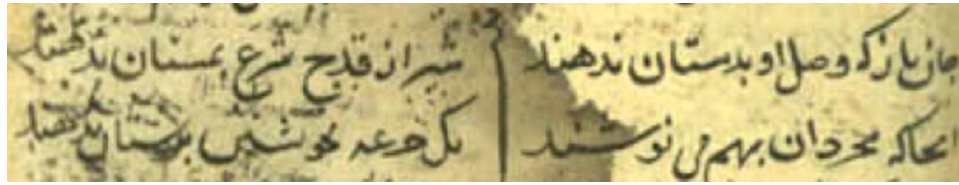 جان باز که وصل او بدستان ندهند شیر از قدح شرع بمستان ندهند
انجا که مجردان بهم می نوشند یک جرعه بخویشتن پرستان ندهند